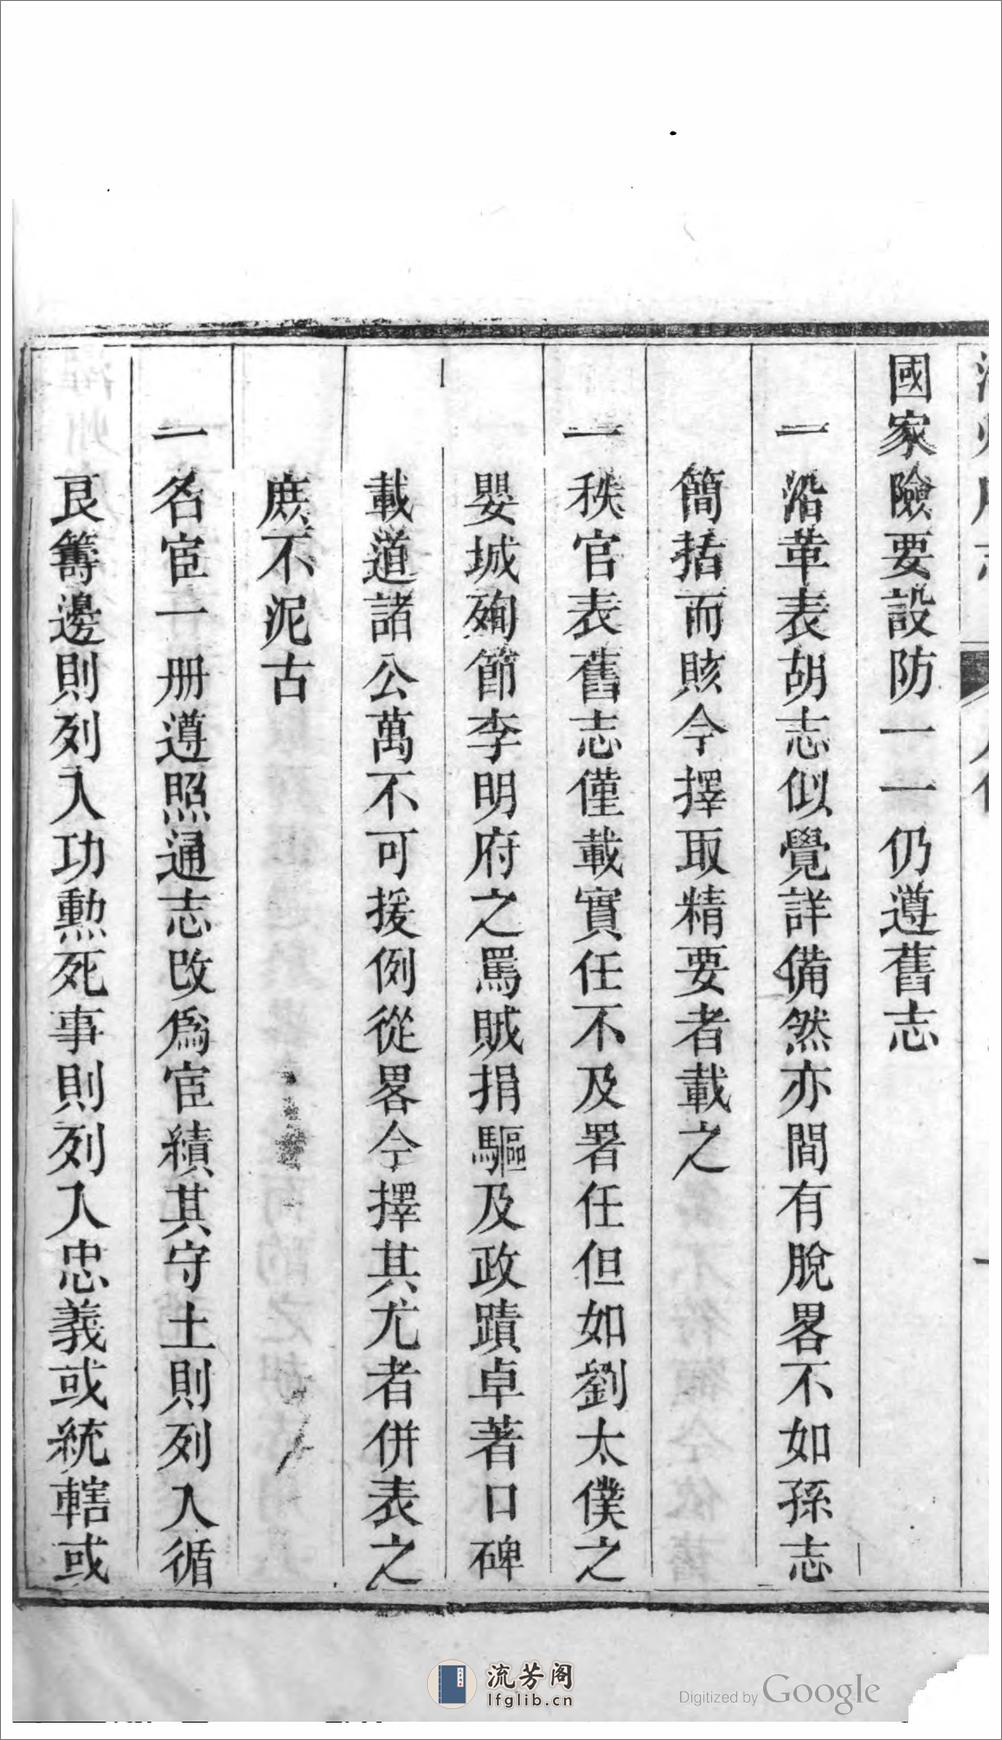 國家險要設防一一仍遵舊志
一沿革表胡志似覺詳備然亦間有脫畧不如孫志
簡括而賅今擇取精要者載之
一秩官表舊志僅載實任不及署任但如劉太僕之
嬰城殉節李明府之罵賊捐驅及政蹟卓著口碑
載道諸公萬不可援例從畧今擇其尤者併表之
庶不泥古
一名宦一册遵照通志改爲宦績其守土則列入循
良籌邊則列入功勲死事則列入忠義或統轄或
流芳阁
lfglib.cn
Digitized by Google